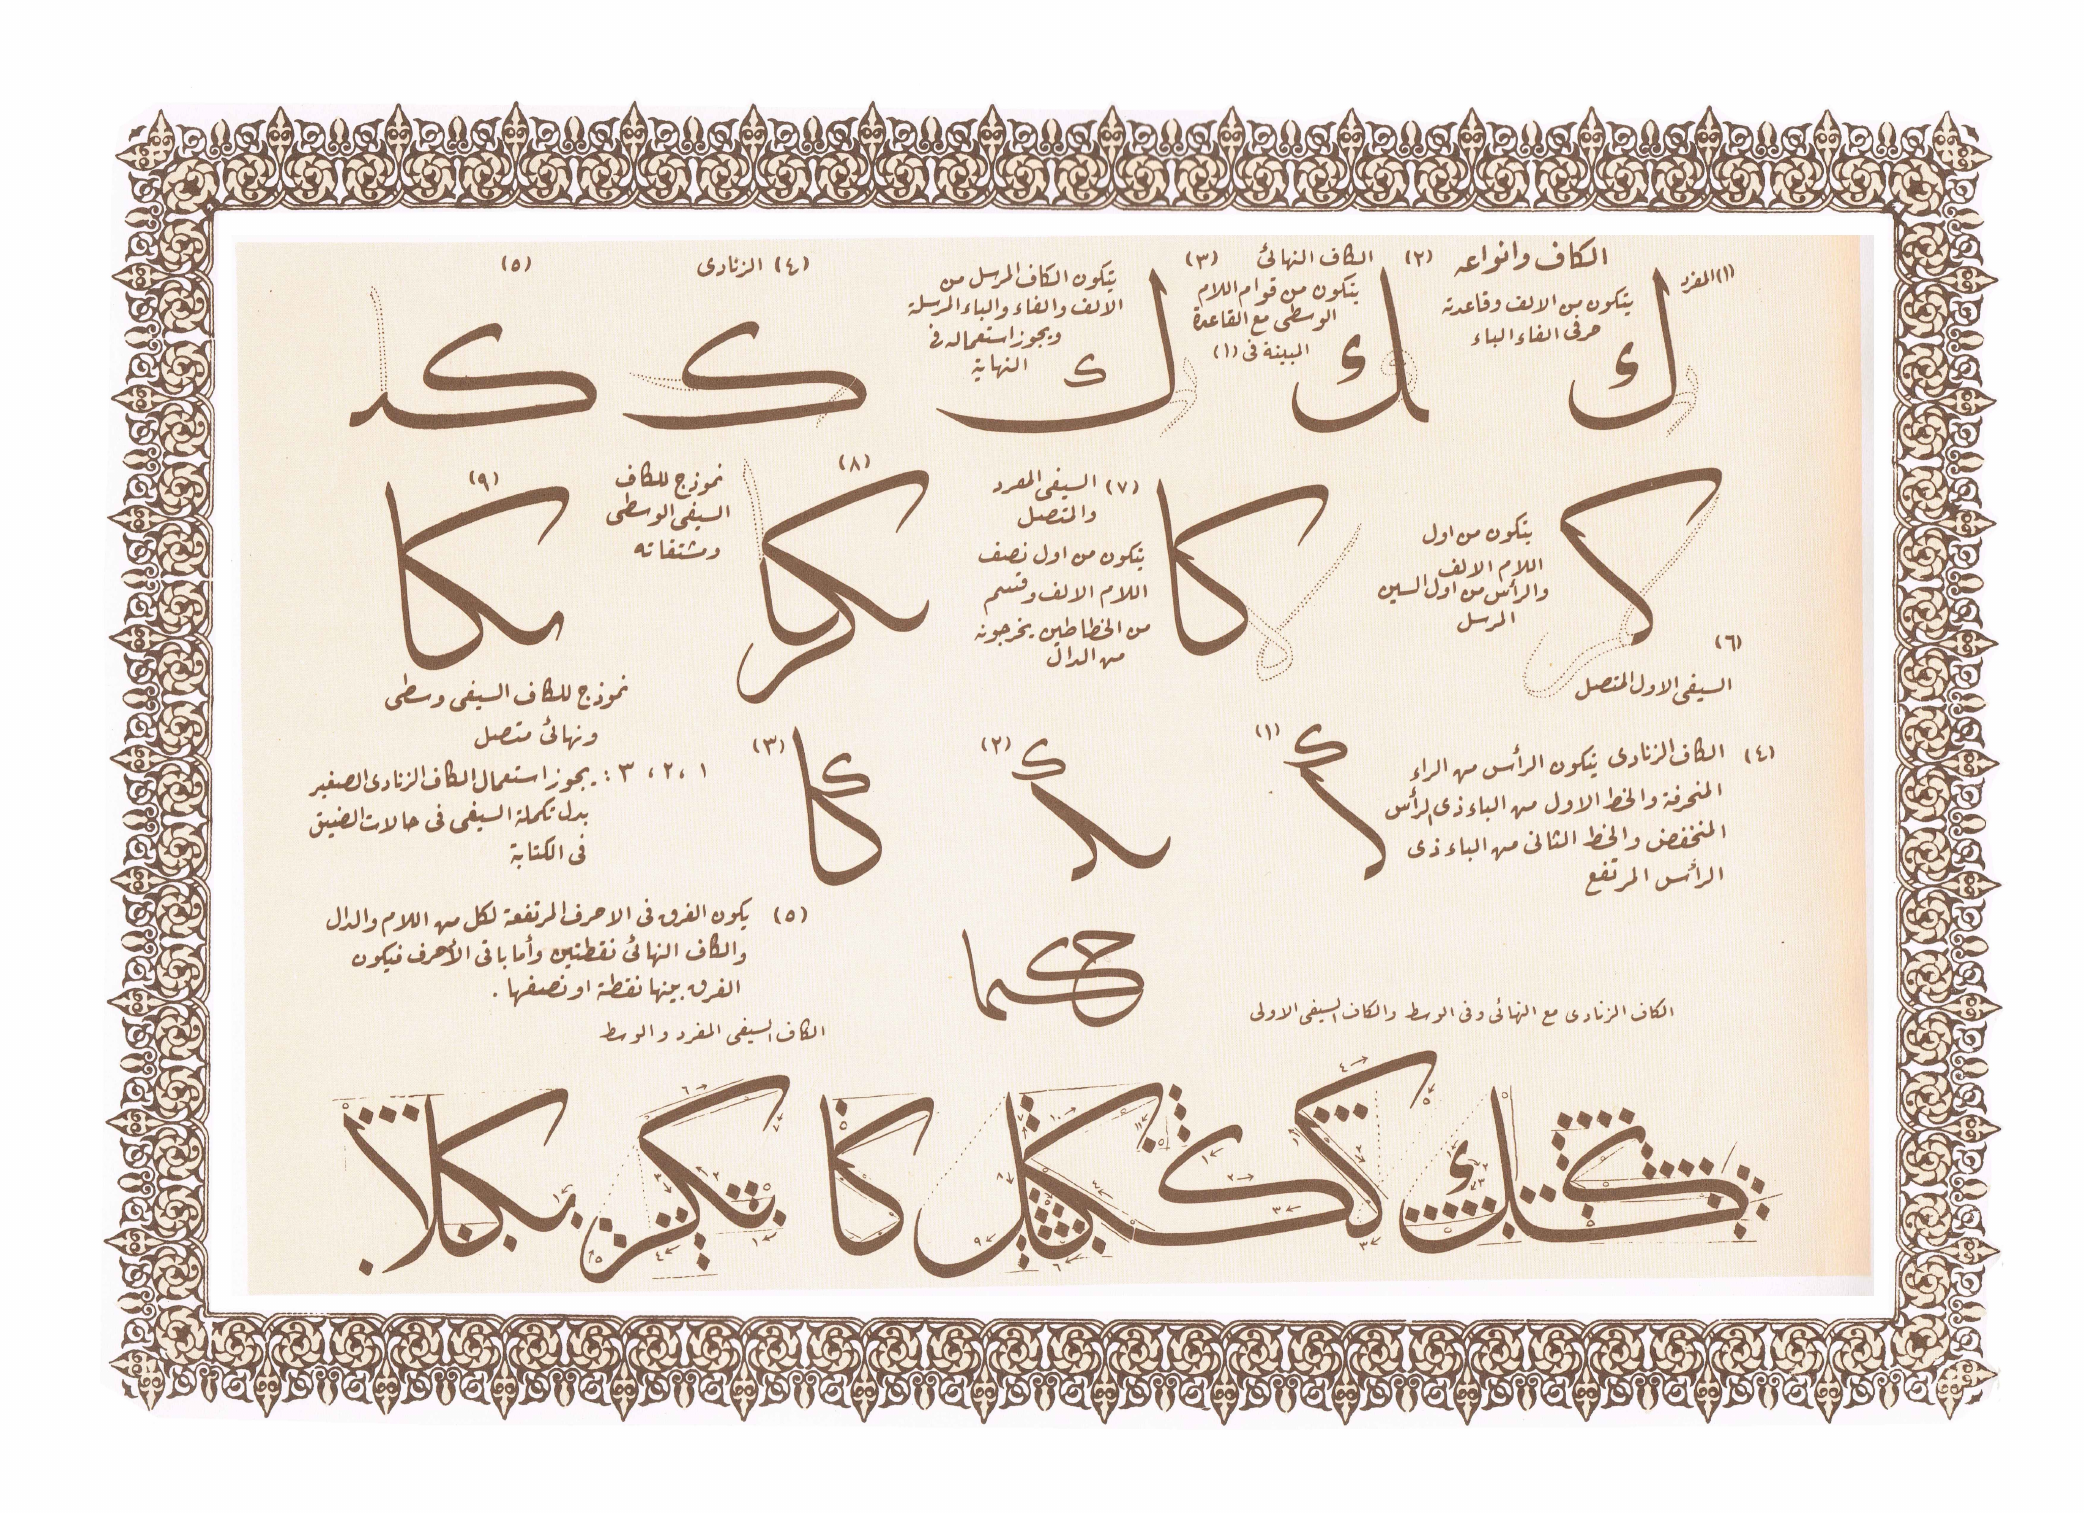 الكاف وانواعه
(١) المفرد
يتكون من الالف وقاعدته
حرفى الفاء الباء
ك
(٢) الكاف النهائى
يتكون من قوام اللام
الوسطى مع القاعدة
المبينة فى (١)
ك
(٣)
يتكون الكاف المرسل من
الالف والفاء والباء المرسلة
ويجوز استعماله فى
النهاية
ك
(٤) الزنادى
ك
(٥)
كد
كر
يتكون من اول
اللام الالف
والرأس من اول السين
المرسل
(٦)
السيفى الاول المتصل
كا
(٧) السيفى المفرد
والمتصل
يتكون من اول نصف
اللام الالف وقسم
من الخطاطين يخرجونه
من الدال
(٨)
نموذج للكاف
السيفى الوسطى
ومشتقاته
(٩)
نموذج للكاف السيفى وسطى
ونهائى متصل
(٤) الكاف الزنادى يتكون الرأس من الراء
المنحرفة والخط الاول من الباء ذى الرأس
المنخفض والخط الثانى من الباء ذى
الرأس المرتفع
(١)
(٢)
(٣)
كا
١ ،٢ ،٣ : يجوز استعمال الكاف الزنادى الصغير
بدل تكملة السيفى فى حالات الضيق
فى الكتابة
(٥) يكون الفرق فى الاحرف المرتفعة لكل من اللام والدال
والكاف النهائى نقطتين وأما باقى الأحرف فيكون
الفرق بينها نقطة او نصفها .
حكما
الكاف الزنادى مع النهائى وفى الوسط والكاف السيفى الاولى
الكاف السيفى المفرد والوسط
كا